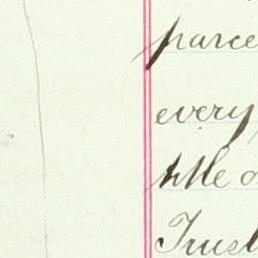 parce
every
title o
Trust